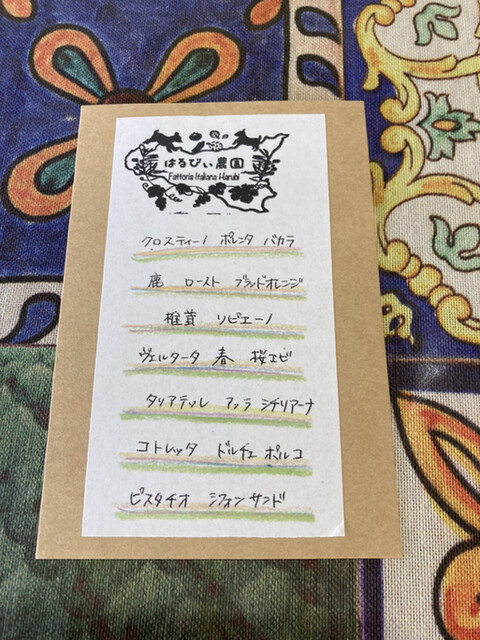 はるびぃ農園
Fattoria Italiana Harubi
クロスティーノ ポレンタ バカラ
鹿 ロースト ブラッドオレンジ
椎茸 リピエーノ
ヴェルタータ 春 桜エビ
タリアテッレ アッラ シチリアーナ
コトレッタ ドルチェ ポルコ
ピスタチオ シフォンサンド